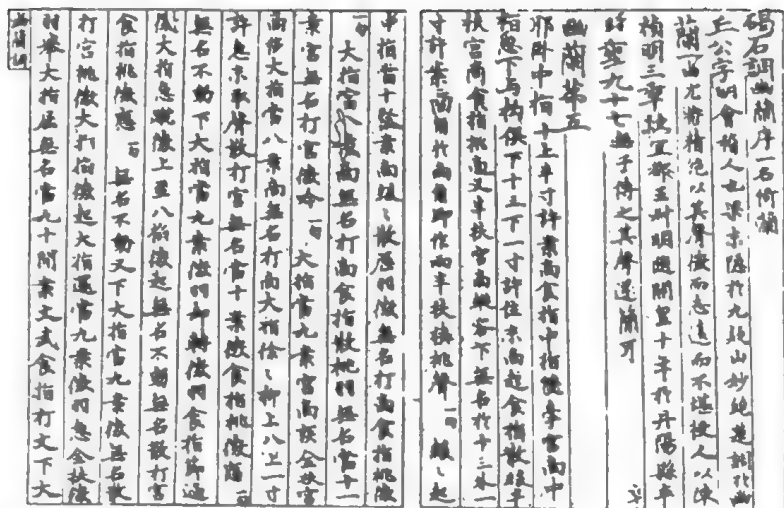 碣石調幽蘭序一名倚蘭
丘公字明會稽人也梁末隱於九疑山妙絕楚調於幽
蘭一曲尤特精絕以其聲微而志遠而不堪授人以陳
禎明三年授宜都王叔明隨開皇十年於丹陽縣卒
時年九十七無子傳之其聲遂簡耳
幽蘭第五
耶臥中指十上半寸許案商食指中指雙牽宮商中
指急下与拘俱下十三下一寸許住末商起食指散緩半
扶宮商食指挑商又半扶宮商縱容下無名於十三外一
寸許案商角於商角即作兩半扶挾挑聲一句緩緩起
中指當十案商緩緩散歷羽徵無名打商食指挑徵
一句大指當八案商無名打商食指散挑羽無名當十一
案宮無名打宮徵吟一句大指當九案宮商疾全扶宮
商移大指當八案商無名打商大指徐徐抑上八上一寸
許急末取聲散打宮無名當十案徵食指挑徵
無名不動下大指當九案徵羽即
大指急蹴徵上至八掐徵起無名不動無名散打宮
食指挑徵應一句無名不動又下大指當九案徵無名散
打宮挑徵大指掐徵起大指還當九案徵羽急全扶徵
羽舉大指無名當九十間案文武食指打文下大